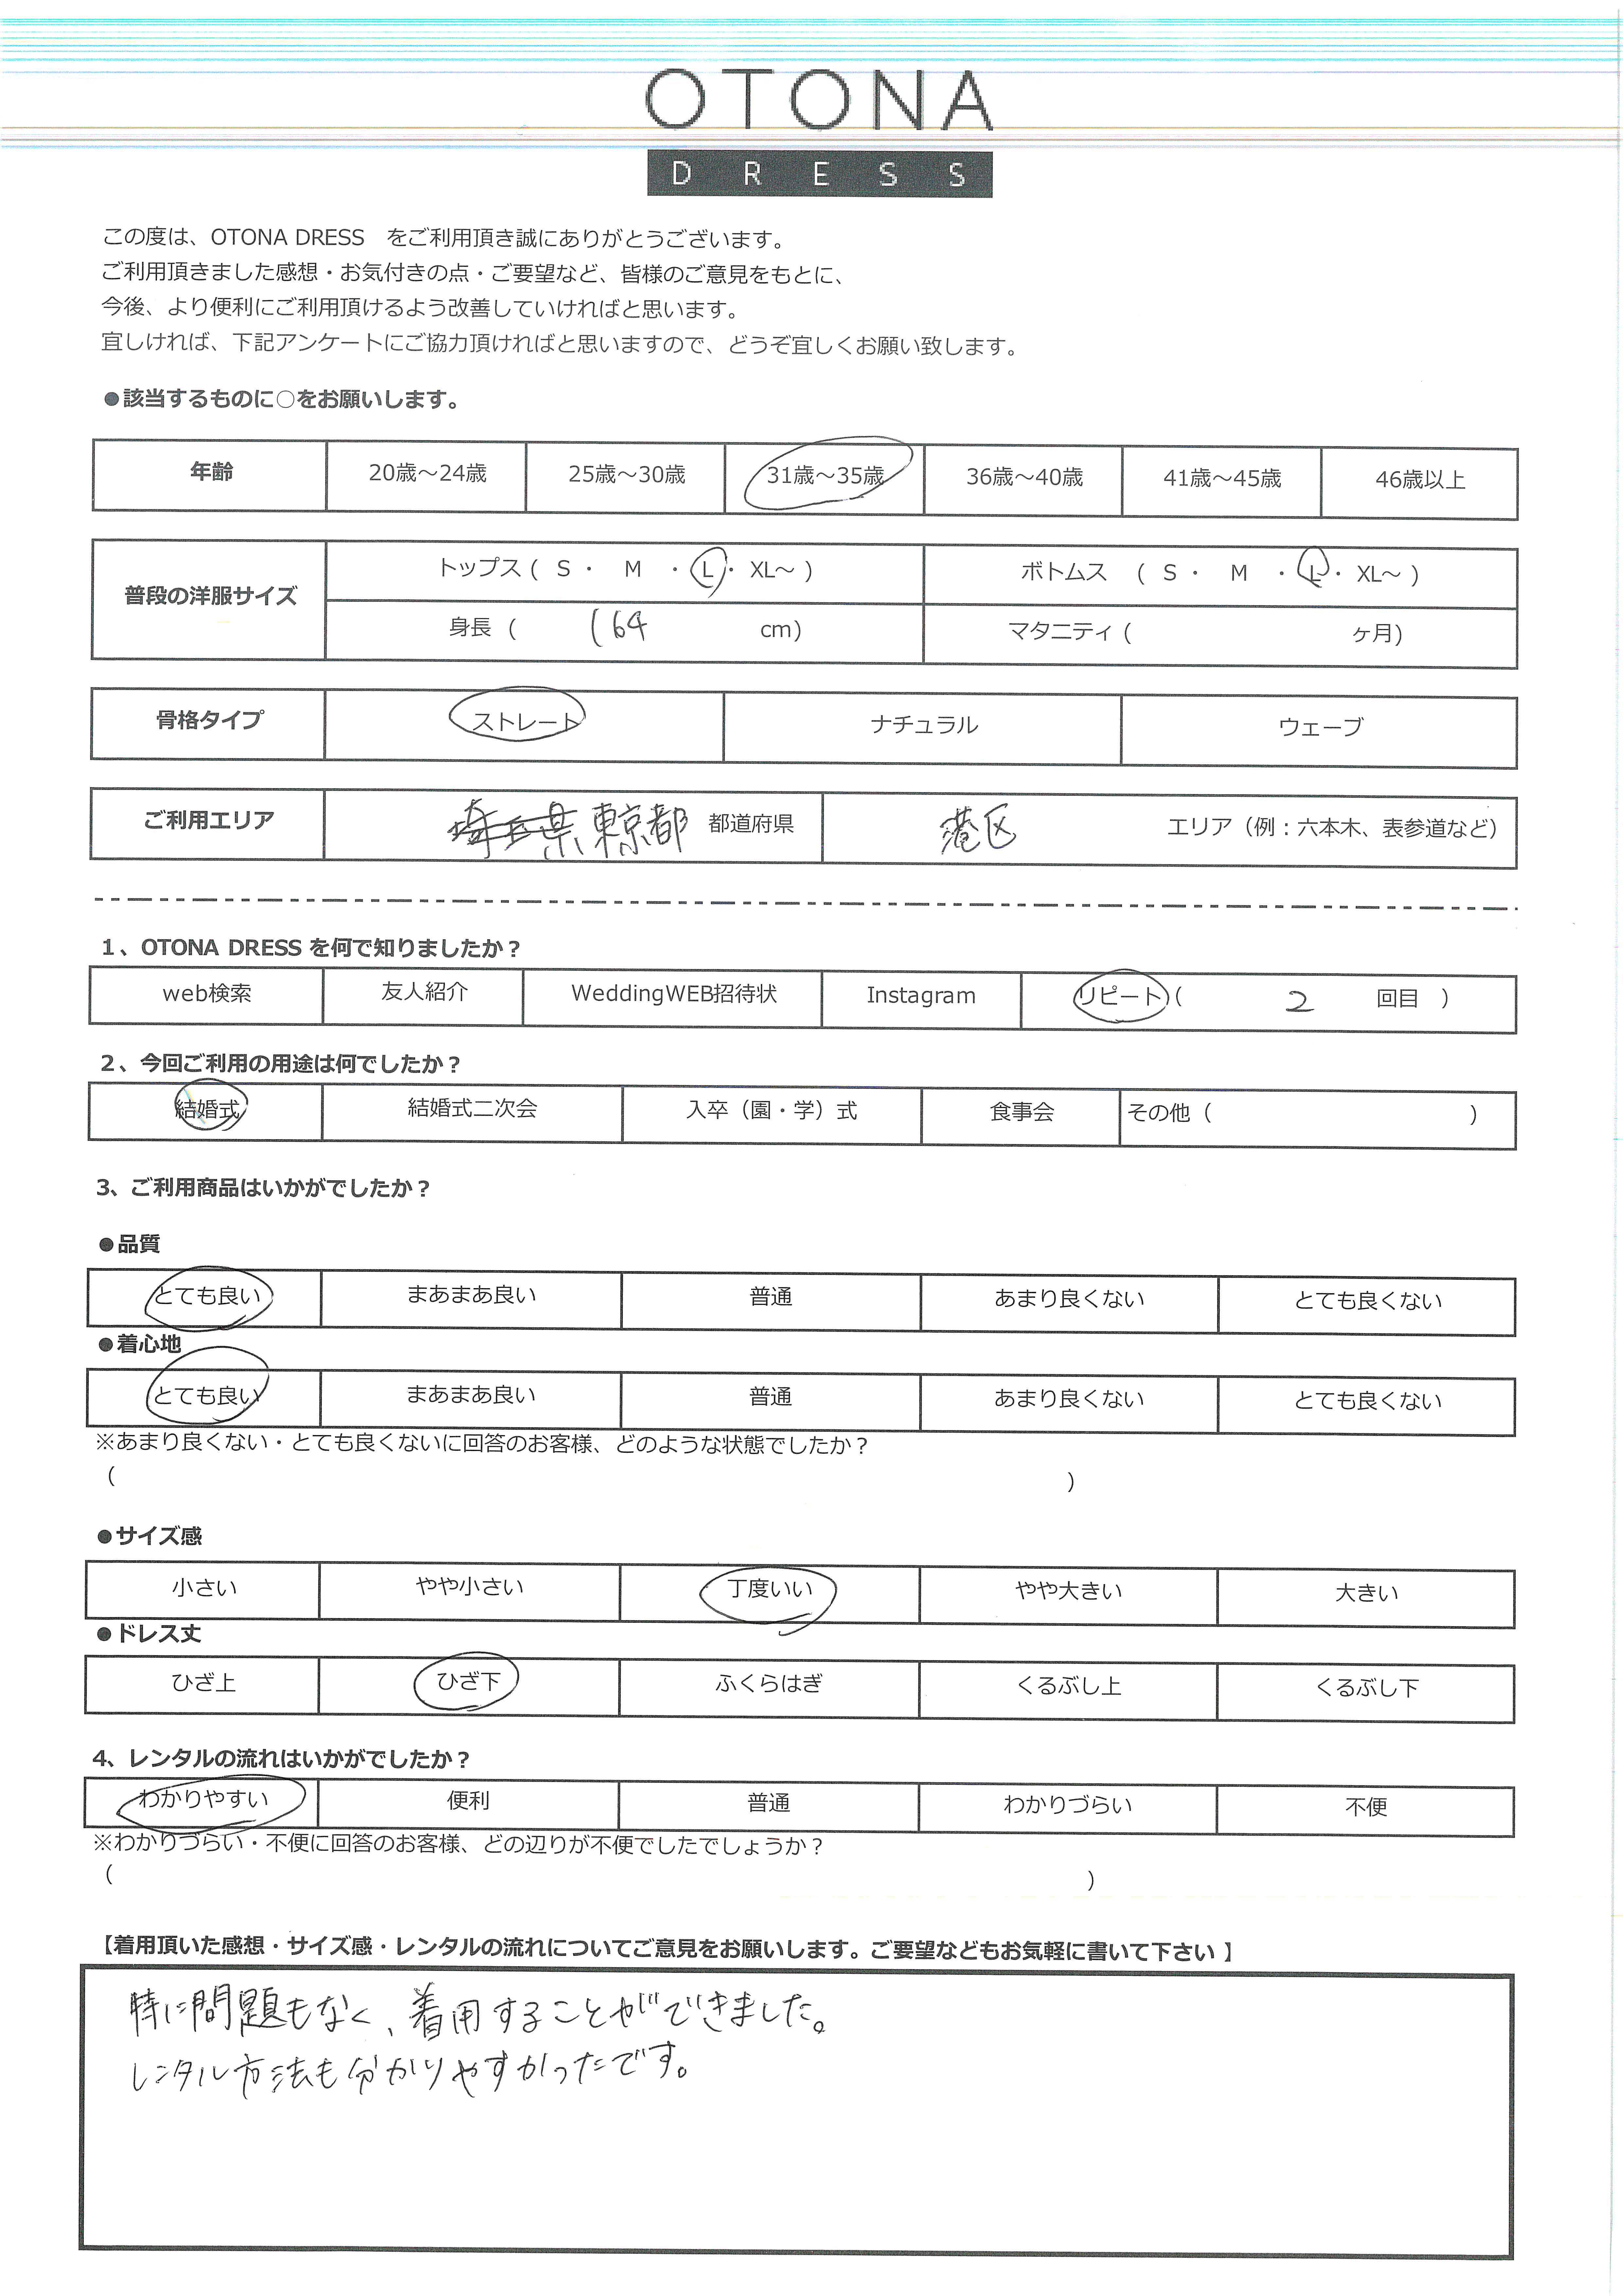 OTONA
DRESS
この度は、OTONA DRESS をご利用頂き誠にありがとうございます。
ご利用頂きました感想・お気付きの点・ご要望など、皆様のご意見をもとに、
今後、より便利にご利用頂けるよう改善していければと思います。
宜しければ、下記アンケートにご協力頂ければと思いますので、どうぞ宜しくお願い致します。
●該当するものに○をお願いします。
年齢 20歳～24歳 25歳～30歳 31歳～35歳 36歳～40歳 41歳～45歳 46歳以上
普段の洋服サイズ トップス ( S ・ M ・ L ・ XL～ ) ボトムス ( S ・ M ・ L ・ XL～ )
身長 ( 164 cm) マタニティ ( ヶ月)
骨格タイプ ストレート ナチュラル ウェーブ
ご利用エリア 埼玉県 東京都 都道府県 港区 エリア（例：六本木、表参道など）
1、OTONA DRESS を何で知りましたか？
web検索 友人紹介 WeddingWEB招待状 Instagram リピート ( 2 回目 )
2、今回ご利用の用途は何でしたか？
結婚式 結婚式二次会 入卒（園・学）式 食事会 その他 ( )
3、ご利用商品はいかがでしたか？
●品質
とても良い まあまあ良い 普通 あまり良くない とても良くない
●着心地
とても良い まあまあ良い 普通 あまり良くない とても良くない
※あまり良くない・とても良くないに回答のお客様、どのような状態でしたか？
( )
●サイズ感
小さい やや小さい 丁度いい やや大きい 大きい
●ドレス丈
ひざ上 ひざ下 ふくらはぎ くるぶし上 くるぶし下
4、レンタルの流れはいかがでしたか？
わかりやすい 便利 普通 わかりづらい 不便
※わかりづらい・不便に回答のお客様、どの辺りが不便でしたでしょうか？
( )
【着用頂いた感想・サイズ感・レンタルの流れについてご意見をお願いします。ご要望などもお気軽に書いて下さい 】
特に問題もなく、着用することができました。
レンタル方法も分かりやすかったです。